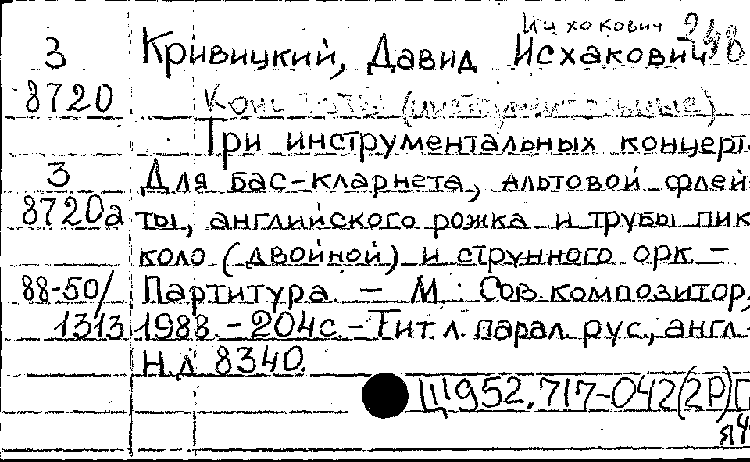 Ицхокович
3 Кривицкий, Давид Исхакович 248
8720 (инструментальные)
Три инструментальных концерт
3 Для бас-кларнета, альтовой флей-
8720а ты, английского рожка и трубы пик
коло (двойной) и струнного орк –
88-50/ Партитура. – М.: Сов. композитор,
1313 1988. – 204с – Тит. л. парал. рус., англ.
Н.д. 8340.
Ш952.717-042(2Р)П
я4